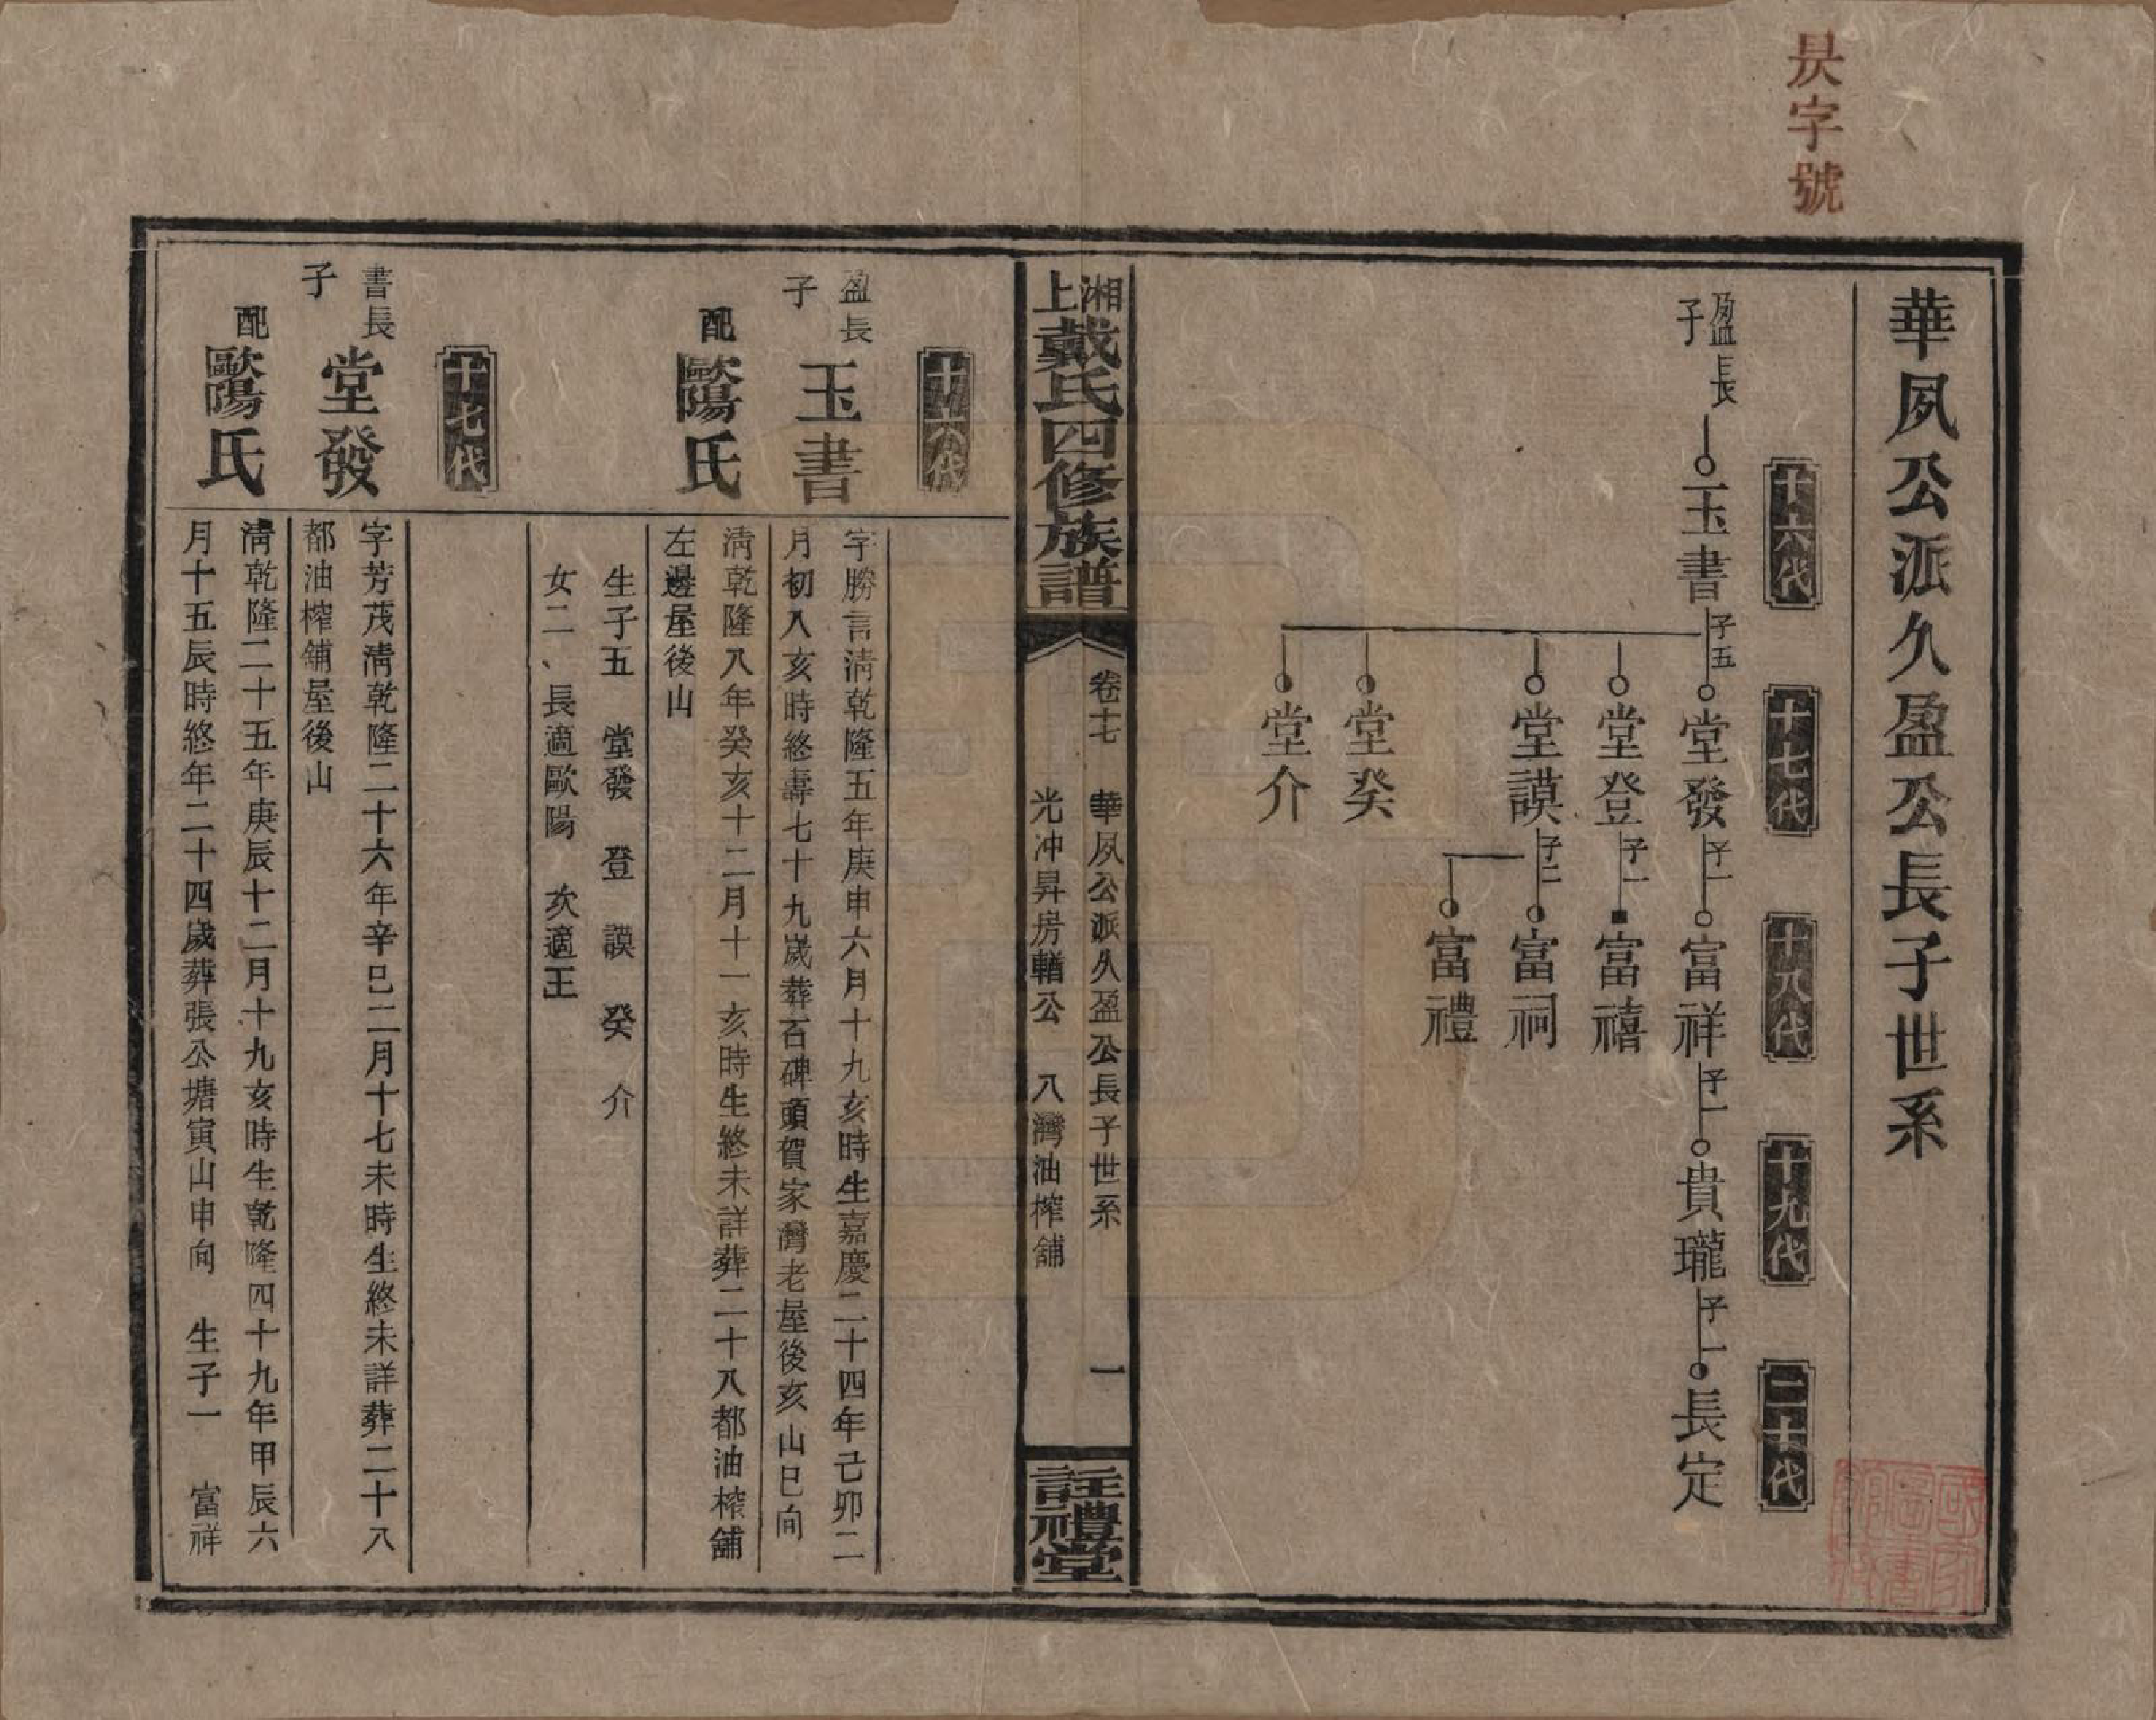 昃字號
華夙公派久盈公長子世系
十六代
十七代
十八代
十九代
二十代
盈長子
玉書 子五
堂發 子一
富祥 子一
貴瓏 子一
長定
堂登 子一
富禧
堂謨 子二
富祠
富禮
堂癸
堂介
湘上戴氏四修族譜
卷十七
華夙公派久盈公長子世系
一
光冲昇房輶公 八灣油榨舖
註禮堂
十六代
盈長子
玉書
字勝言清乾隆五年庚申六月十九亥時生嘉慶二十四年己卯二
月初八亥時終壽七十九歲葬石碑頭賀家灣老屋後亥山巳向
配
歐陽氏
清乾隆八年癸亥十二月十一亥時生終未詳葬二十八都油榨舖
左邊屋後山
生子五 堂發 登 謨 癸 介
女二、長適歐陽 次適王
十七代
書長子
堂發
字芳茂清乾隆二十六年辛巳二月十七未時生終未詳葬二十八
都油榨舖屋後山
配
歐陽氏
清乾隆二十五年庚辰十二月十九亥時生乾隆四十九年甲辰六
月十五辰時終年二十四歲葬張公塘寅山申向 生子一 富祥